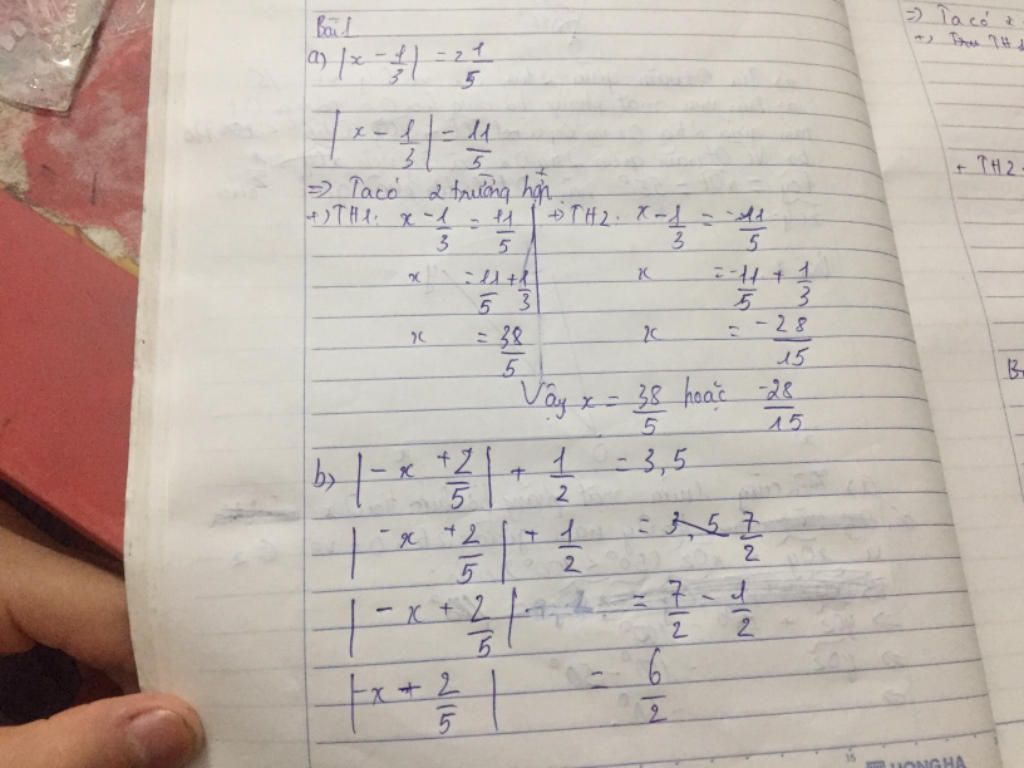 Bài 1
a) |x - 1/3| = 2 1/5
|x - 1/3| = 11/5
=> Ta có 2 trường hợp
+) TH1: x - 1/3 = 11/5
x = 11/5 + 1/3
x = 38/5
+) TH2: x - 1/3 = -11/5
x = -11/5 + 1/3
x = -28/15
Vậy x = 38/5 hoặc -28/15
b) |-x + 2/5| + 1/2 = 3,5
|-x + 2/5| + 1/2 = 7/2
|-x + 2/5| = 7/2 - 1/2
|-x + 2/5| = 6/2
=> Ta có 2
+) TH1
+ TH2
HONGHA